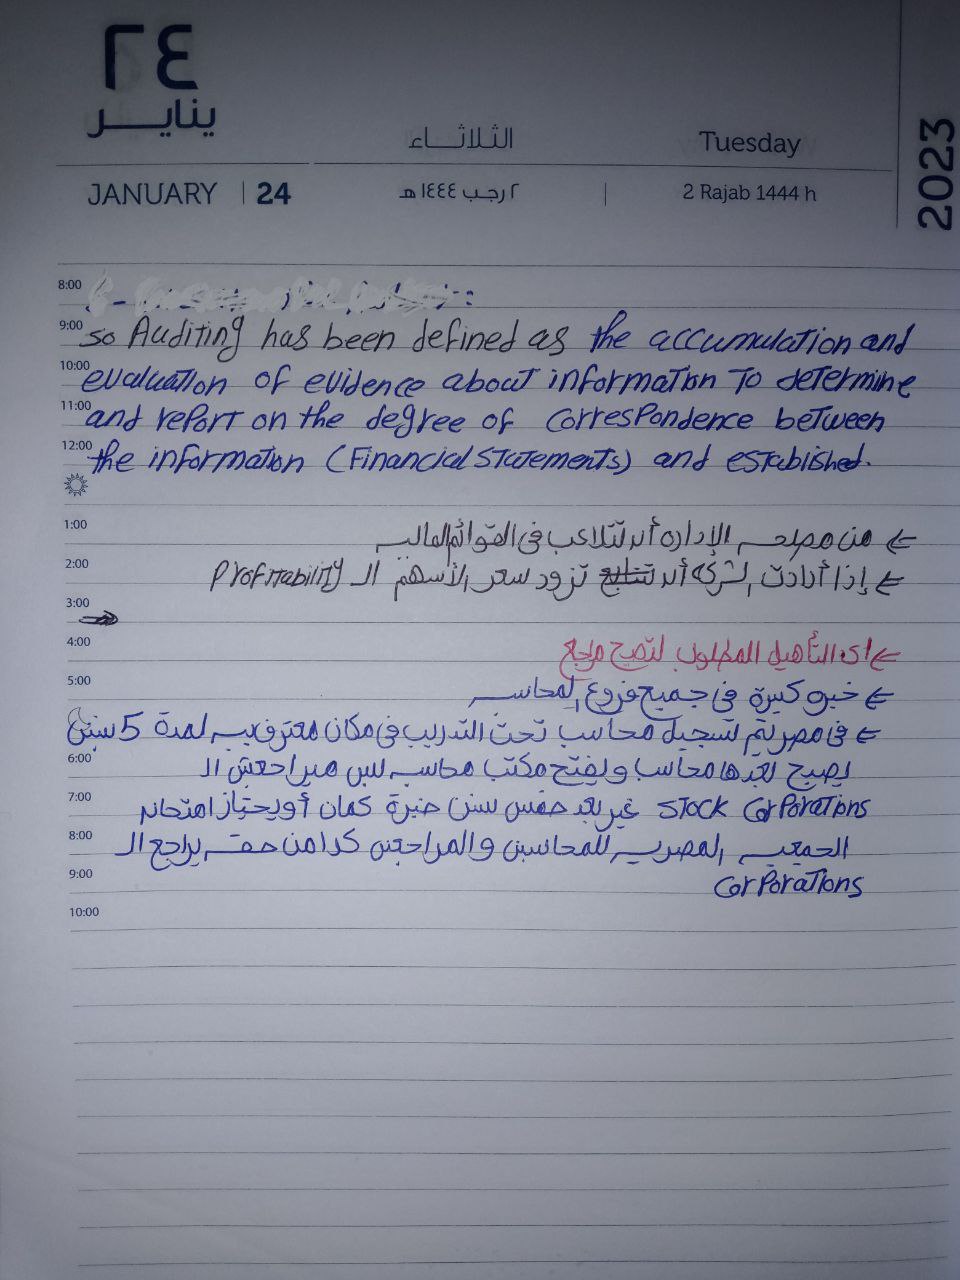 ٢٤
يناير
الثلاثاء
Tuesday
2023
JANUARY | 24
٢ رجب ١٤٤٤ هـ
|
2 Rajab 1444 h
8:00
9:00 so Auditing has been defined as the accumulation and
10:00 evaluation of evidence about information to determine
11:00 and report on the degree of correspondence between
12:00 the information (Financial Statements) and established.
1:00 من مصلحه الإداره أن تتلاعب في القوائم الماليه
2:00 إذا أرادت الشركه أن تزود سعر الأسهم الـ Profitability
3:00
4:00 اى التأهيل المطلوب لتصبح مراجع
5:00 خبره كبيرة فى جميع فروع المحاسبه
فى مصر يتم تسجيل محاسب تحت التدريب فى مكان معترف بيه لمدة 5 سنين
6:00 يصبح بعدها محاسب ويفتح مكتب محاسبه بس ميراجعش الـ
7:00 Stock Corporations غير بعد خمس سنين خبرة كمان أو يجتاز امتحان
8:00 الجمعيه المصريه للمحاسبين والمراجعين كدا من حقه يراجع الـ
9:00 Corporations
10:00